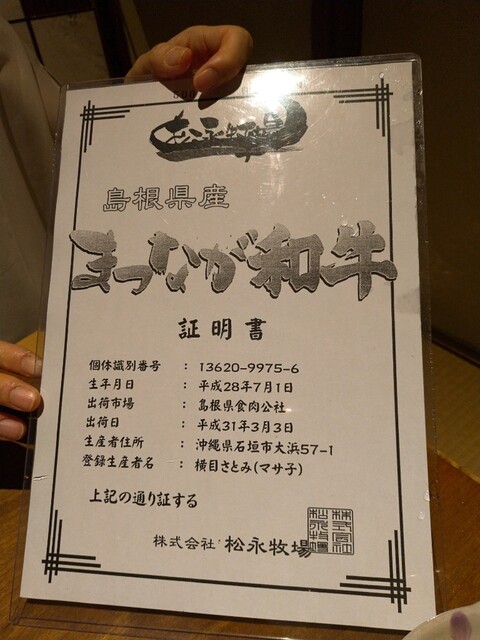 松永牧場
島根県産
まつなが和牛
証明書
個体識別番号 : 13620-9975-6
生年月日 : 平成28年7月1日
出荷市場 : 島根県食肉公社
出荷日 : 平成31年3月3日
生産者住所 : 沖縄県石垣市大浜57-1
登録生産者名 : 横目さとみ(マサ子)
上記の通り証する
株式会社 松永牧場